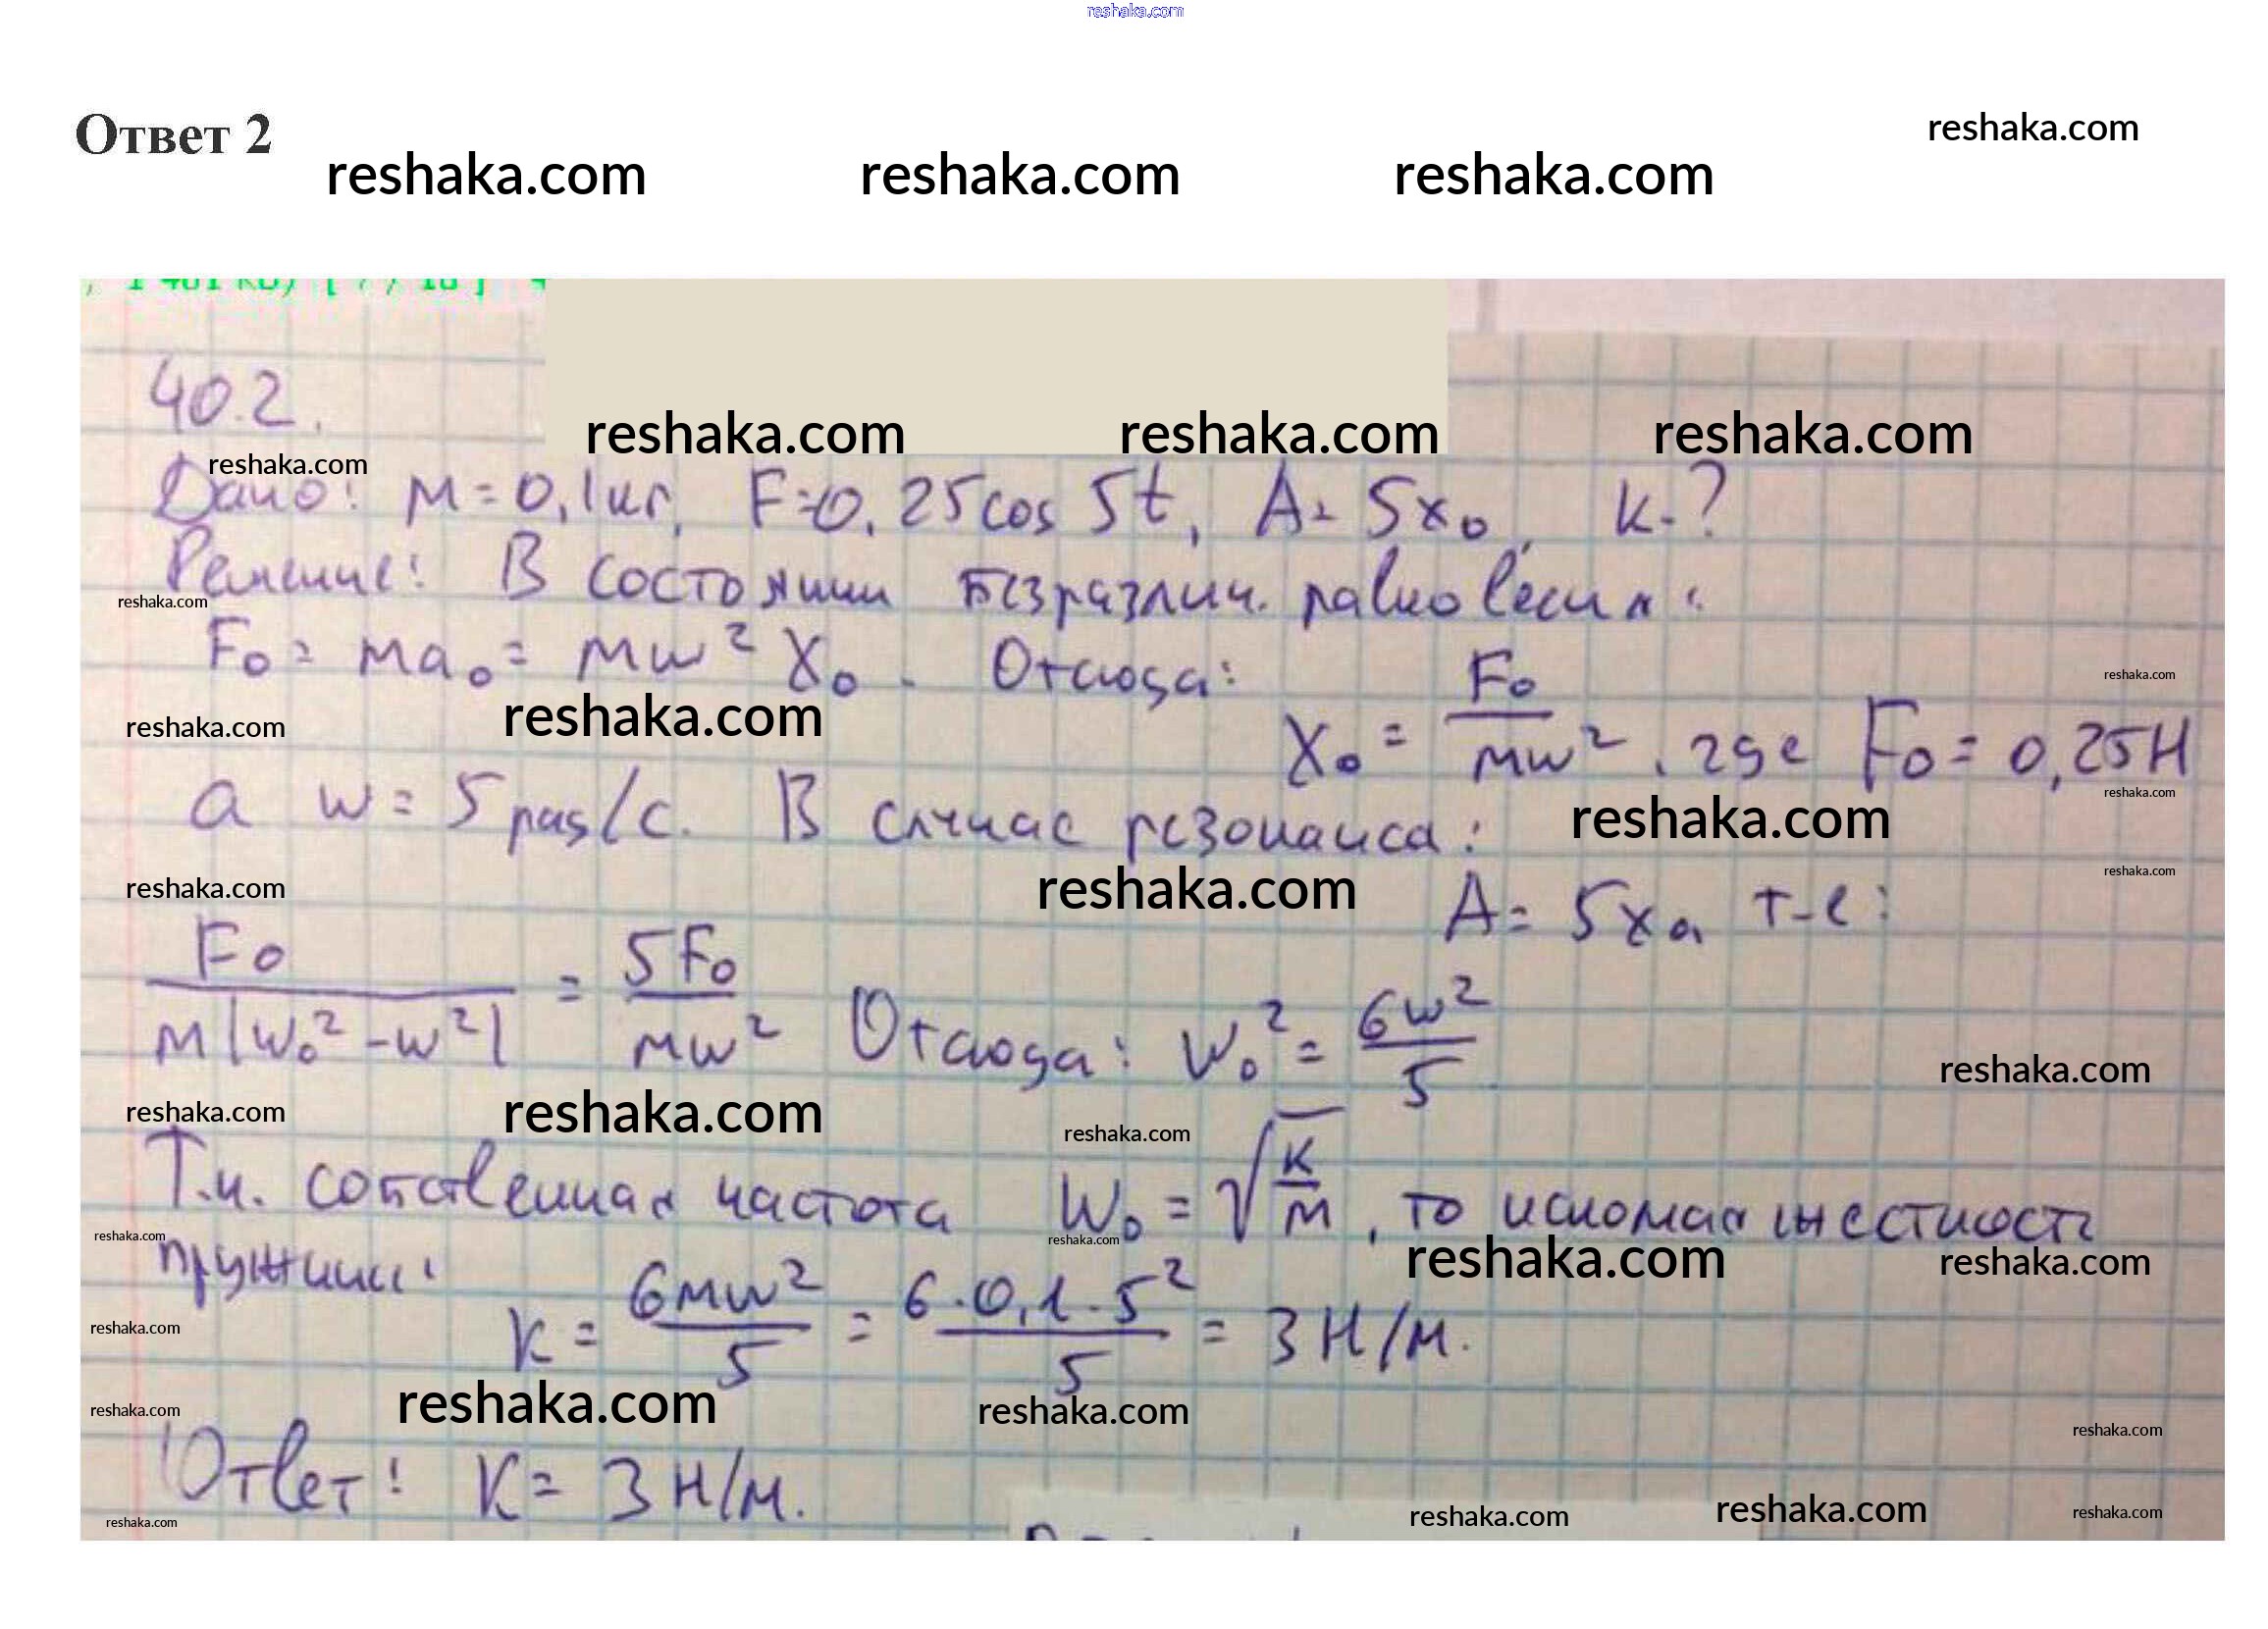 reshaka.com
Ответ 2
reshaka.com
reshaka.com reshaka.com reshaka.com
40.2.
reshaka.com reshaka.com reshaka.com
reshaka.com
Дано: m = 0,1 кг, F = 0,25 cos 5t, A = 5x₀, k - ?
Решение: В состоянии безразлич. равновесия:
reshaka.com
F₀ = ma₀ = mw² x₀. Отсюда:
reshaka.com
x₀ = F₀/mw², где F₀ = 0,25 Н
reshaka.com reshaka.com
reshaka.com
а w = 5 рад/с. В случае резонанса:
reshaka.com
reshaka.com
reshaka.com reshaka.com
A = 5x₀, т-е:
F₀/m|w₀² - w²| = 5F₀/mw² Отсюда: w₀² = 6w²/5
reshaka.com
reshaka.com reshaka.com reshaka.com
Т.к. собственная частота w₀ = √k/m, то искомая жесткость
reshaka.com reshaka.com
пружины:
reshaka.com reshaka.com
k = 6mw²/5 = 6·0,1·5²/5 = 3 Н/м.
reshaka.com
reshaka.com reshaka.com reshaka.com
reshaka.com
Ответ: K = 3 Н/м.
reshaka.com reshaka.com reshaka.com reshaka.com